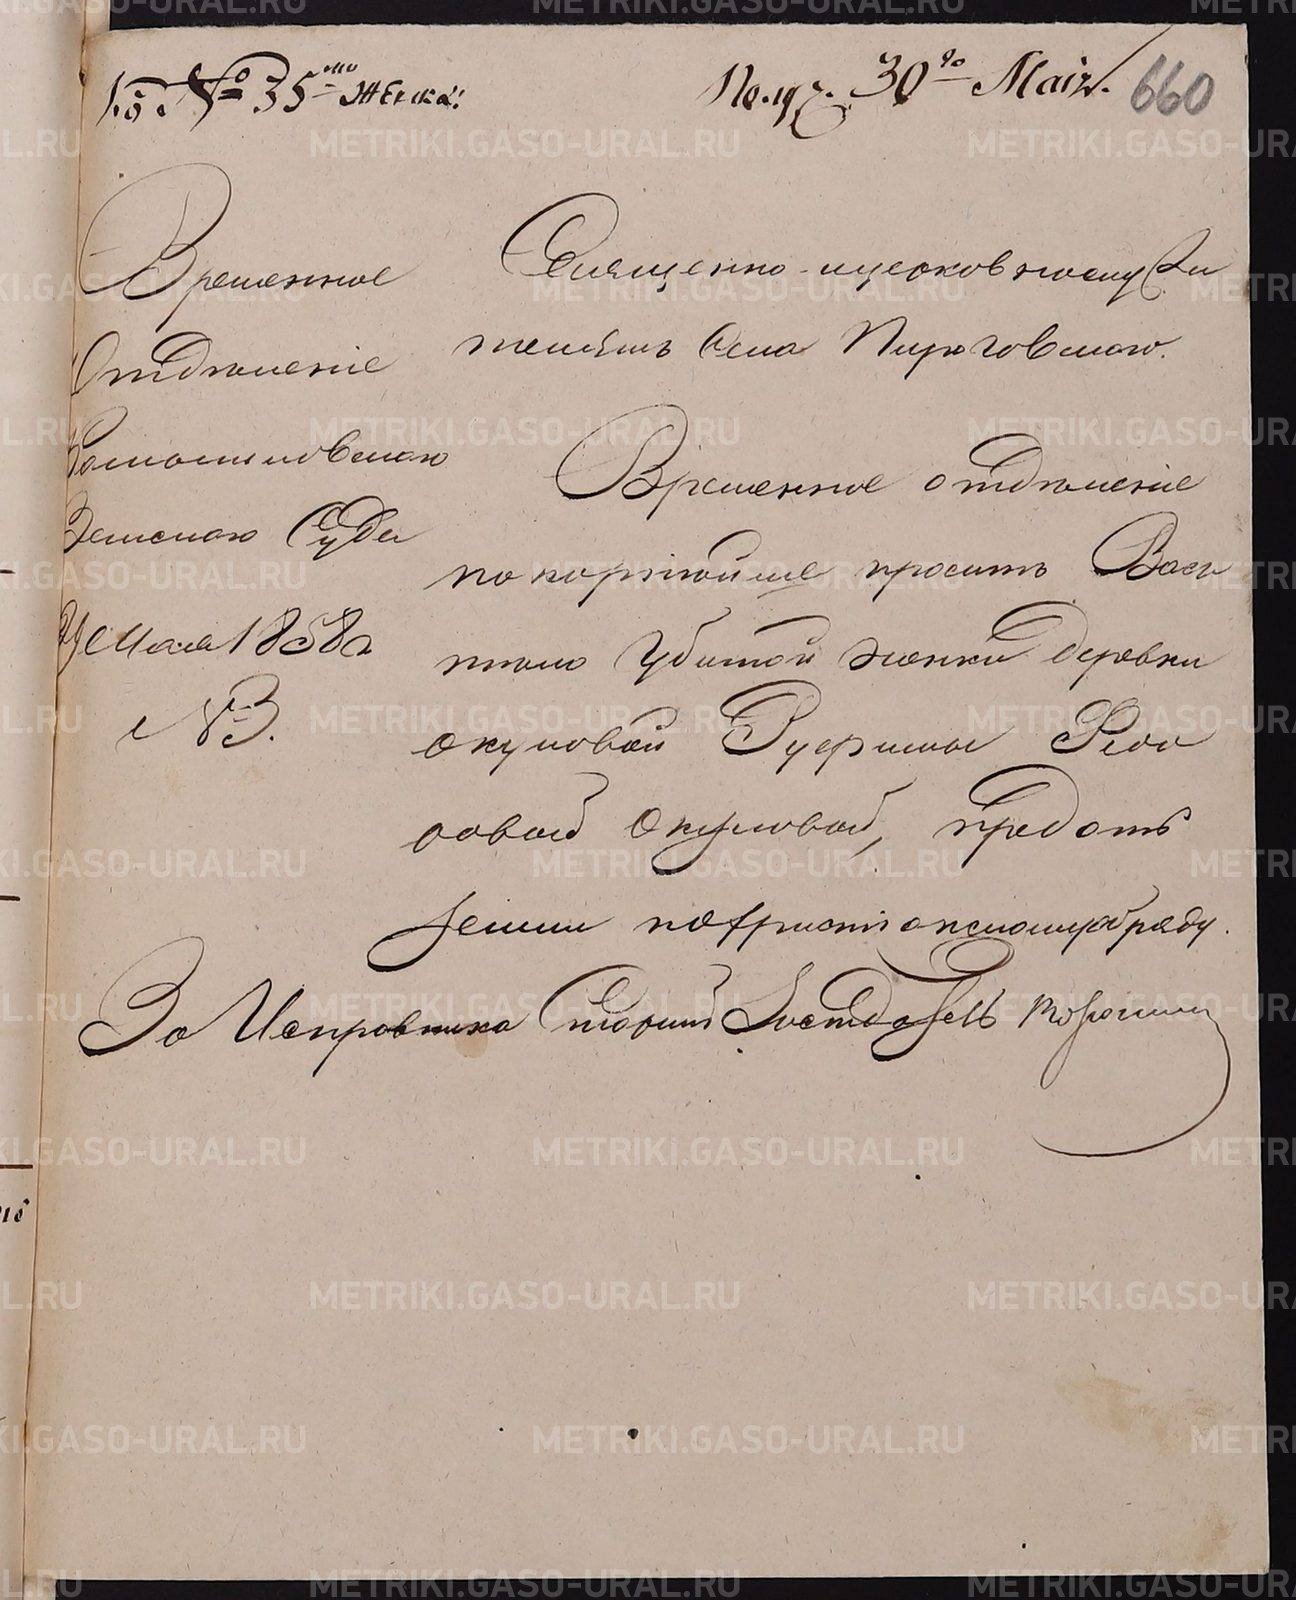 Къ № 35му женска:
Получ. 30го Маія.
660
Временное
Отделеніе
Камышловскаго
Земскаго Суда
29 Мая 1858 г
№ 3.
Священно-церковнослужи
телямъ Села Пироговскаго.
Временное отделеніе
покорнейше проситъ Васъ
тело убитой женки деревни
Окуловой Руфимы Федо
ровой Окуловой, предать
земли по христіанскому обряду.
За Исправника Старшій Заседатель